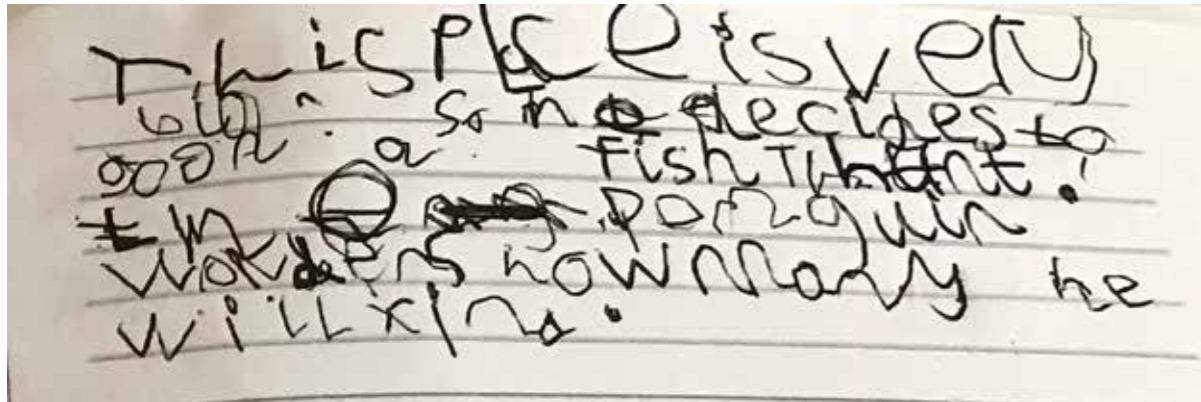 This place is very
big. so he decides to
ooon a fish Tihunt.
the penguin
wonders how many he
will find.